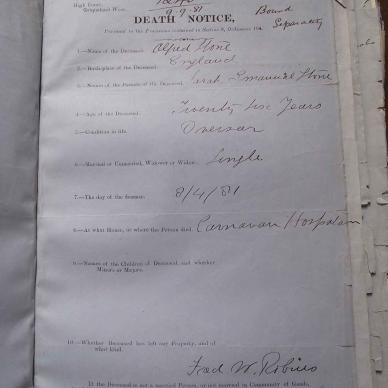 High Court,
Griqualand West.
9.9.81
Bound
Separately
DEATH NOTICE,
Pursuant to the Provisions contained in Section 9, Ordinance 104.
1.—Name of the Deceased Alfred Stone
2.—Birthplace of the Deceased England
3.—Names of the Parents of the Deceased Sarah Emanuel Stone
4.—Age of the Deceased Twenty Six Years
5.—Condition in life. Overseer
6.—Married or Unmarried, Widower or Widow. Single
7.—The day of the decease. 8/4/81
8.—At what House, or where the Person died. Carnarvon Hospital
9.—Names of the Children of Deceased and whether
Minors or Majors.
10.—Whether Deceased has left any Property, and of
what kind.
Fred W.
If the Deceased is not a married Person, or not married in Community of Goods,